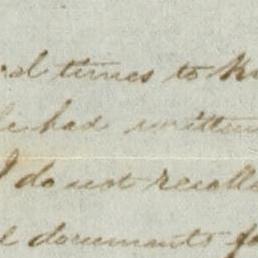 times to
he had written
I do not recolle
documents fo